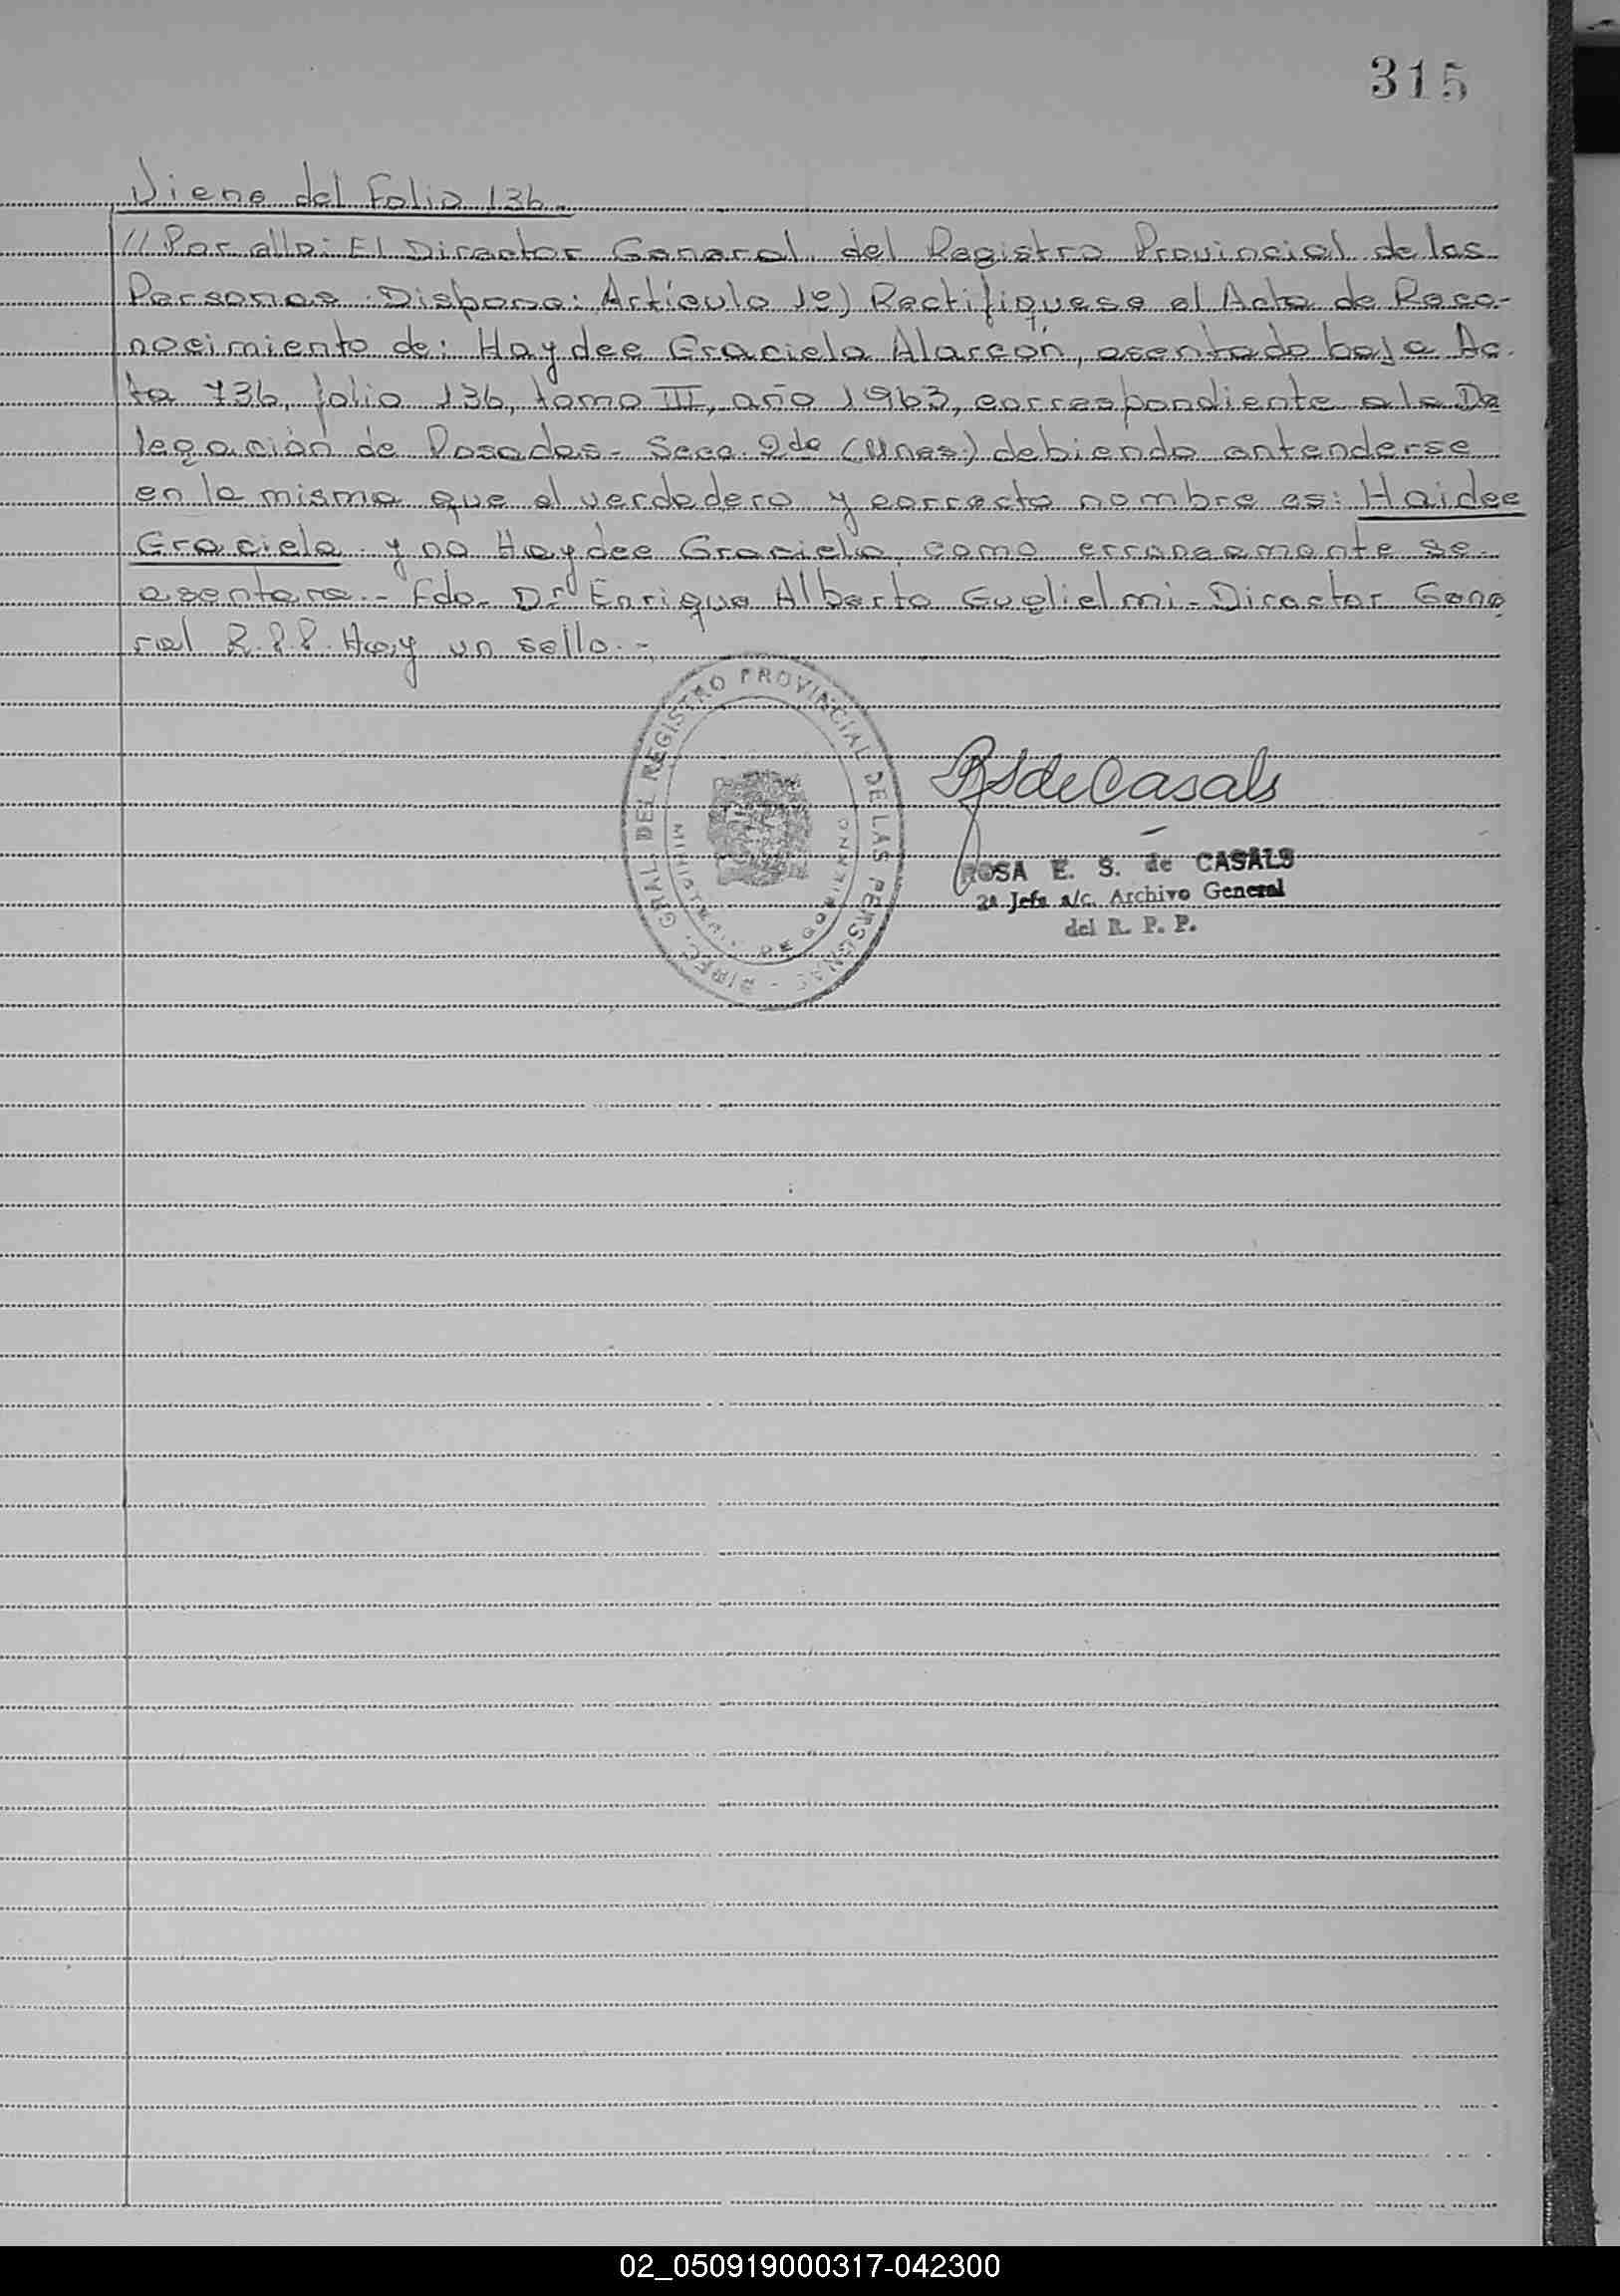 315
Viene del Folio 136.-
// Por ello: El Director General del Registro Provincial de las
Personas Dispone: Artículo 1º) Rectifiquese el Acta de Reco-
nocimiento de: Haydee Graciela Alarcón, asentado bajo Ac-
ta 736, folio 136, tomo III, año 1963, correspondiente a la De
legación de Posadas - Secc. 2da (Mnes.) debiendo entenderse
en la misma que el verdadero y correcto nombre es: Haidee
Graciela y no Haydee Graciela, como erroneamente se
asentara.- Fdo. Dr Enrique Alberto Guglielmi - Director Gene
ral R.P.P. Hay un sello.-
DIREC. GRAL. DEL REGISTRO PROVINCIAL DE LAS PERSONAS -
MINISTERIO DE GOBIERNO
RS de Casals
ROSA E. S. de CASALS
2ª Jefa a/c. Archivo General
del R. P. P.
02_050919000317-042300